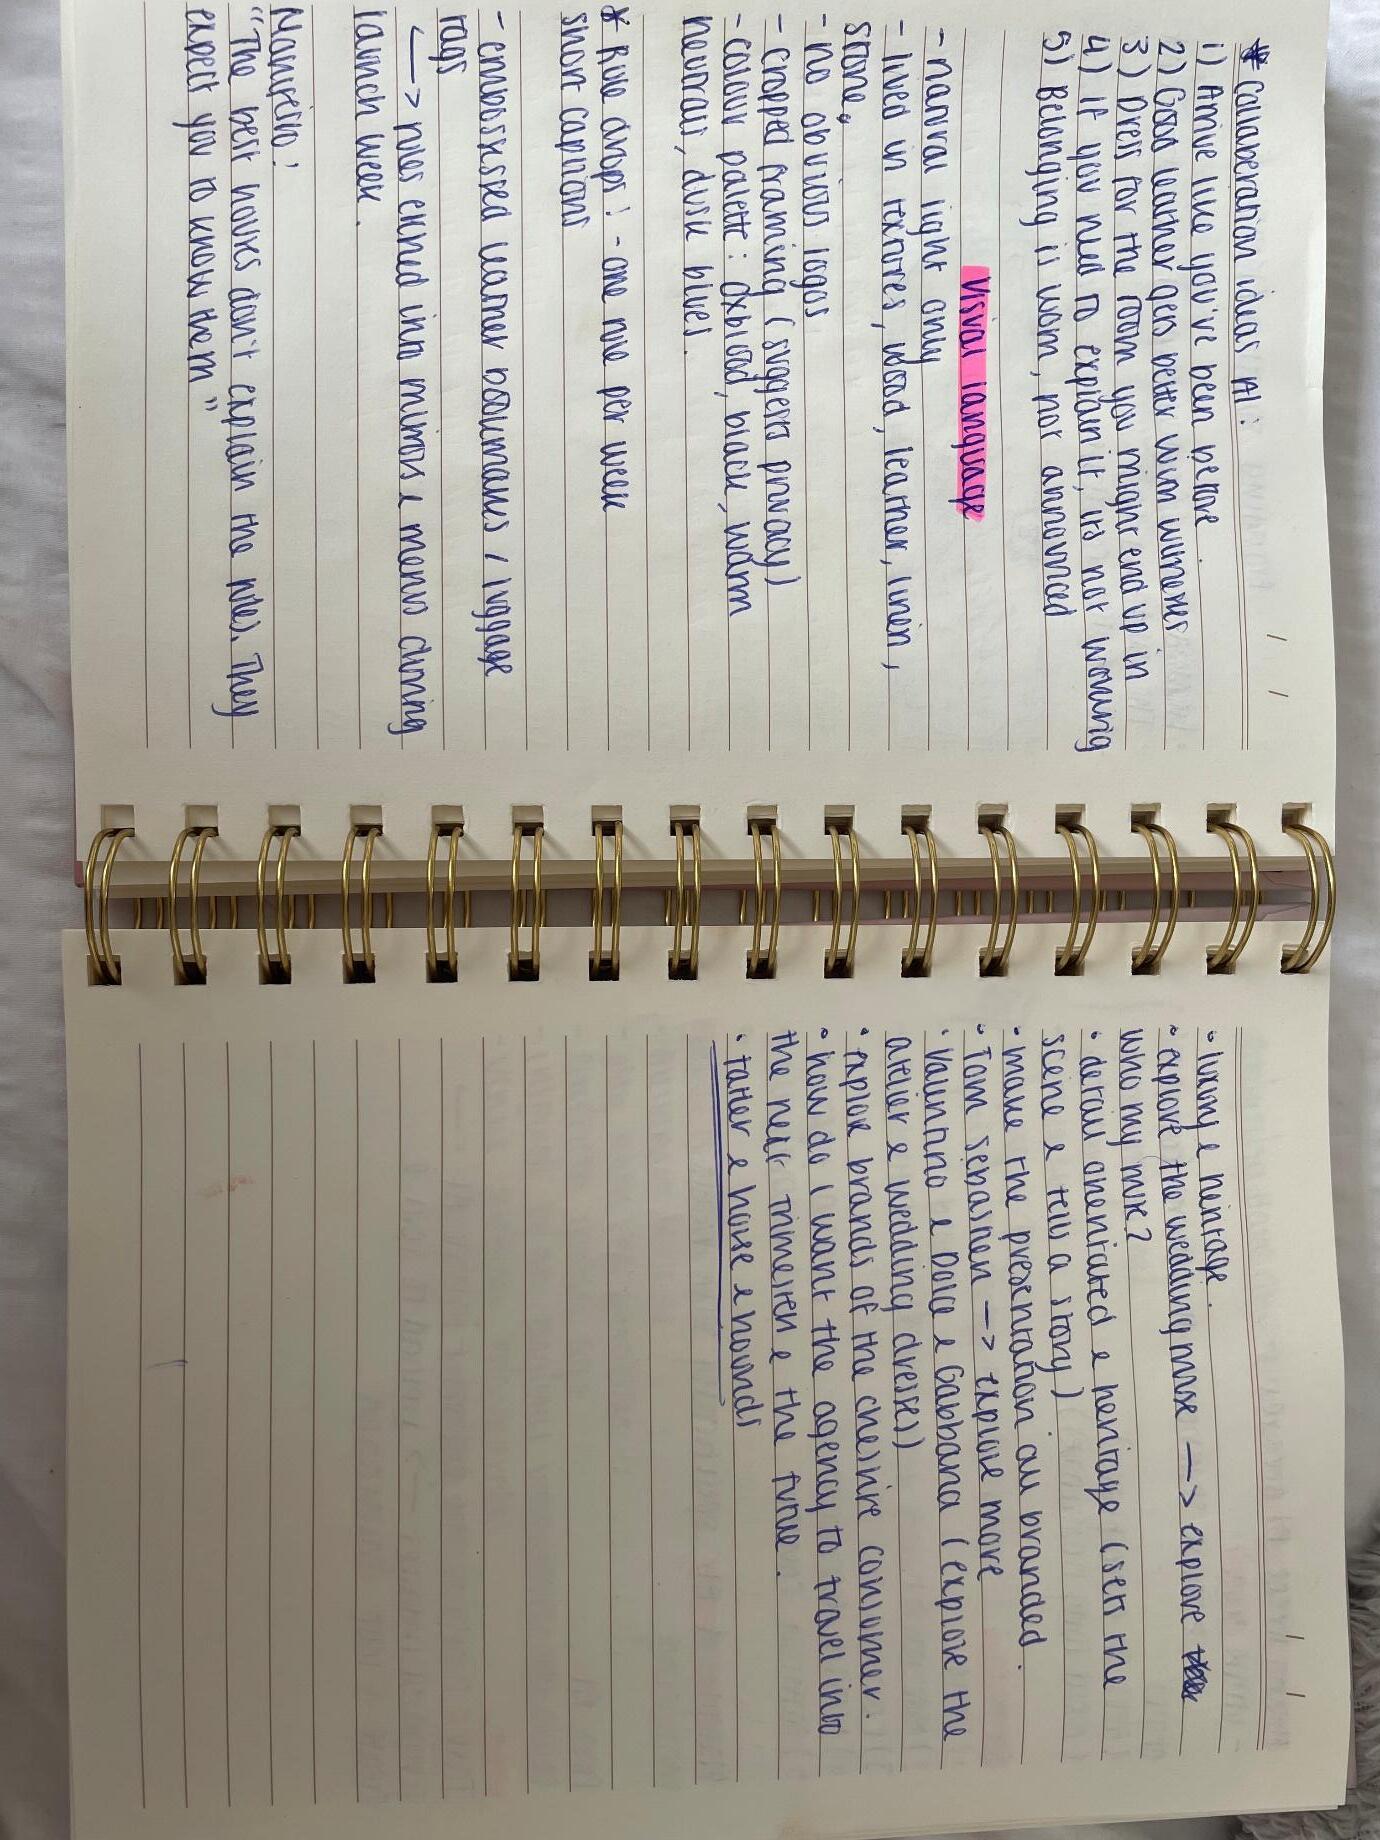 * Collaberation ideas A1 :
1) Arrive like you've been before.
2) Good leather gets better with witnesses
3) Dress for the room you might end up in
4) If you need to explain it, its not working
5) Belonging is worn, not announced
Visual language
- natural light only
- lived in textures, wood, leather, linen,
stone.
- no obvious logos
- cropped framing (suggests privacy)
- colour palette : oxblood, black, warm
neutrals, dusk blues.
* Rule drops! - one rule per week
short captions
- embossed leather bookmarks / luggage
tags
⟶ rules etched into mirrors & menus during
launch week.
Manifesto!
"The best houses don't explain the rules. They
expect you to know them"
• luxury & heritage.
• explore the wedding muse → explore
who my muse?
• detail orientated & heritage (sets the
scene & tells a story)
• make the presentation all branded.
• Tom Sebastien → explore more
• Valintino & Dolce & Gabbana (explore the
atelier & wedding dresses)
• explore brands of the cheshire consumer.
• how do I want the agency to travel into
the next trimester & the future.
• tatler & horse & hounds